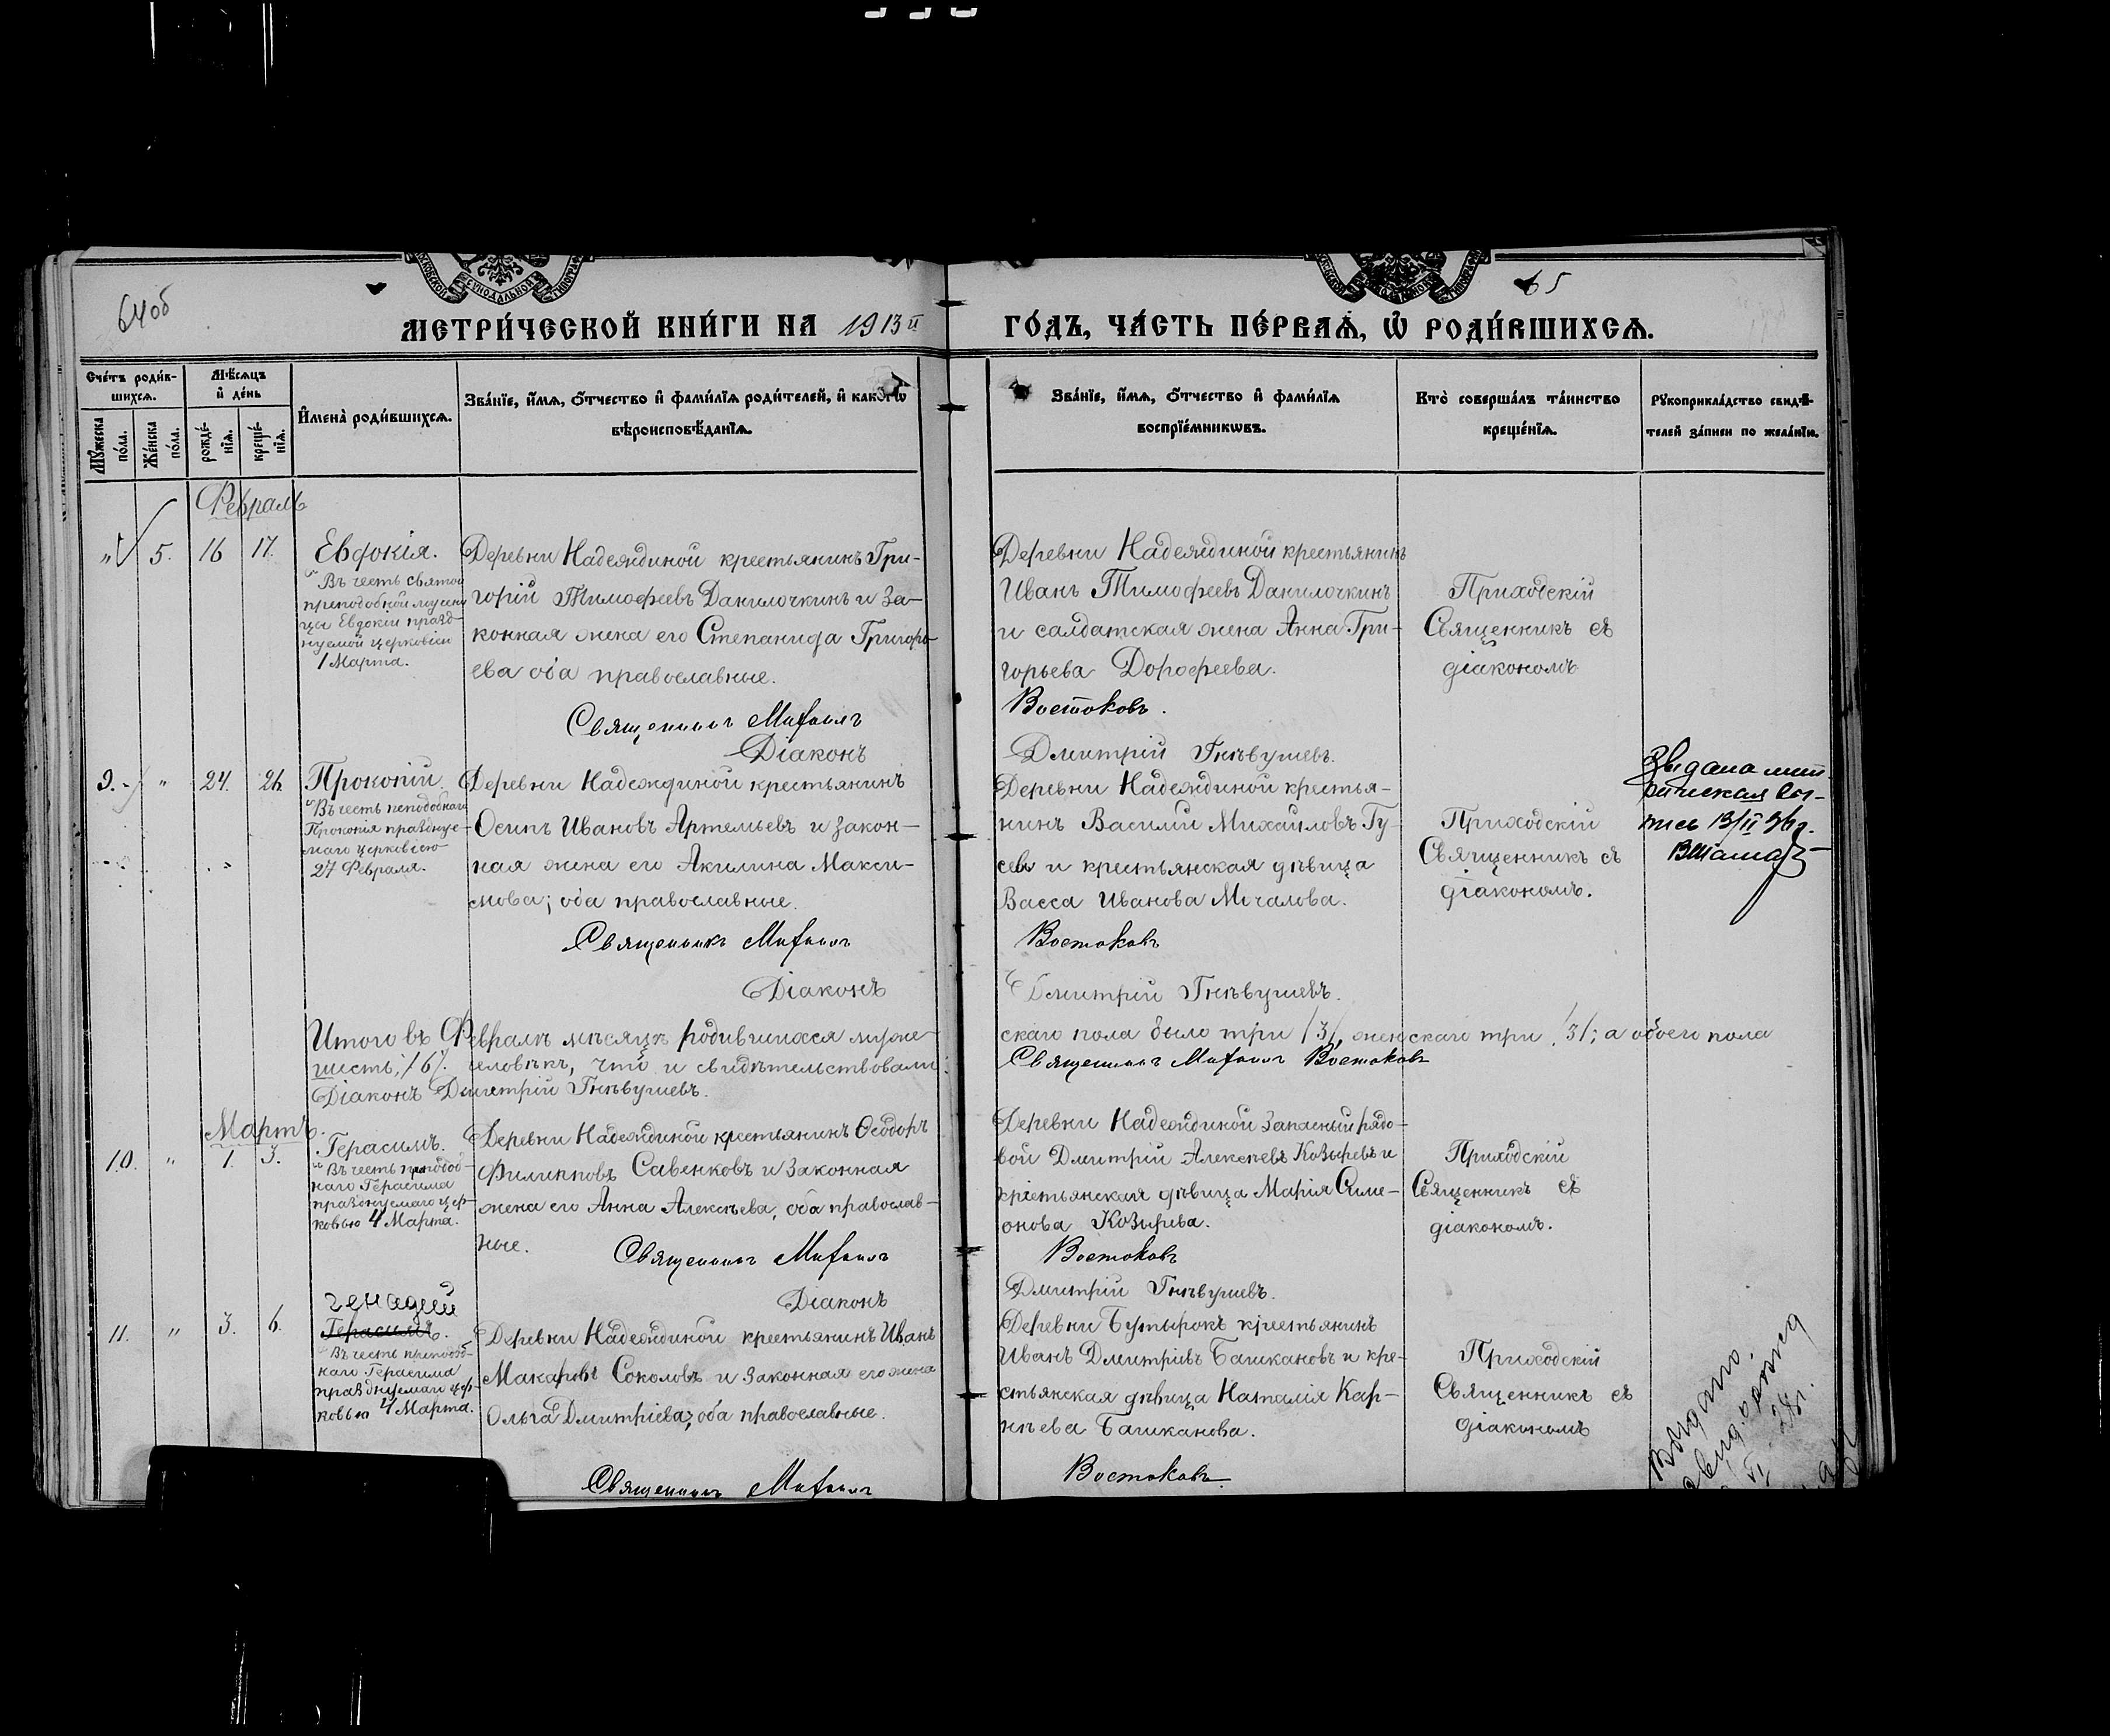 64об
65
МЕТРИ́ЧЕСКОЙ КНИ́ГИ НА 1913й ГО́ДЪ, ЧА́СТЬ ПЕ́РВАѦ, Ѡ҆ РОДИ́ВШИХСѦ.
Сче́тъ роди́в-
шихсѧ.
Мѣ́сѧцъ
и҆ де́нь
Мꙋ́жеска по́ла.
Же́нска по́ла.
рожде́-
нїѧ.
креще́-
нїѧ.
И҆мена̀ роди́вшихсѧ.
Зва́нїе, и҆́мѧ, ѻ҆́тчество и҆ фами́лїѧ роди́телей, и҆ како́гѡ
вѣроисповѣ́данїѧ.
Зва́нїе, и҆́мѧ, ѻ҆́тчество и҆ фами́лїѧ
воспрїе́мникѡвъ.
Кто̀ соверша́лъ та́инство
креще́нїѧ.
Рꙋкоприкла́дство свидѣ́-
телей за́писи по жела́нїю.
Февраль
" 5. 16 17.
Евдокія.
Въ честь святой
преподобной мучени
цы Евдокіи празд-
нуемой церковію
1 Марта.
Деревни Надеждиной крестьянинъ Гри-
горій Тимофеевъ Данилочкинъ и за-
конная жена его Степанида Григорь
ева оба православные.
Священникъ Михаилъ
Діаконъ
Деревни Надеждиной крестьянинъ
Иванъ Тимофеевъ Данилочкинъ
и салдатская жена Анна Гри-
горьева Дорофеева.
Востоковъ.
Дмитрій Гнѣвушевъ.
Приходскій
Священникъ съ
діакономъ
9. " 24. 26.
Прокопій.
Въ честь преподобнаго
Прокопія праздкуе-
маго церковію
27 Февраля.
Деревни Надеждиной крестьянинъ
Осипъ Ивановъ Артемьевъ и закон-
ная жена его Акилина Макси-
мова; оба православные.
Священникъ Михаилъ
Діаконъ
Деревни Надеждиной крестья-
нинъ Василій Михайловъ Гу-
севъ и крестьянская дѣвица
Васса Иванова Мочалова.
Востоковъ
Дмитрій Гнѣвушевъ.
Приходскій
Священникъ съ
діакономъ.
Выдана мет-
рическая вы-
пись 13/II
Итого въ Февралѣ мѣсяцѣ родившихся муже-
скаго пола было три /3/, женскаго три /3/; а обоего пола
шесть; /6/. человѣкъ, что и свидѣтельствовали:
Священникъ Михаилъ Востоковъ
Діаконъ Дмитрій Гнѣвушевъ.
Мартъ.
10. " 1. 3.
Герасимъ.
Въ честь преподоб-
наго Герасима
празднуемаго цер-
ковью 4 Марта.
Деревни Надеждиной крестьянинъ Ѳеодоръ
Филипповъ Савенковъ и законная
жена его Анна Алексѣева, оба православ-
ные.
Священникъ Михаилъ
Діаконъ
Деревни Надеждиной запасный рядо-
вой Дмитрій Алексѣевъ Козыревъ и
крестьянская дѣвица Марія Симе-
онова Козырева.
Востоковъ
Дмитрій Гнѣвушевъ.
Приходскій
Священникъ съ
діакономъ.
11. " 3. 6.
Генадий
Герасимъ.
Въ честь преподоб-
наго Герасима
празднуемаго цер-
ковью 4 Марта.
Деревни Надеждиной крестьянинъ Иванъ
Макаровъ Соколовъ и законная его жена
Ольга Дмитріева; оба православные.
Священникъ Михаилъ
Деревни Бутырокъ крестьянинъ
Иванъ Дмитріевъ Башкановъ и кре-
стьянская дѣвица Наталія Кар-
нѣева Башканова.
Востоковъ
Приходскій
Священникъ съ
діакономъ
Выдано.